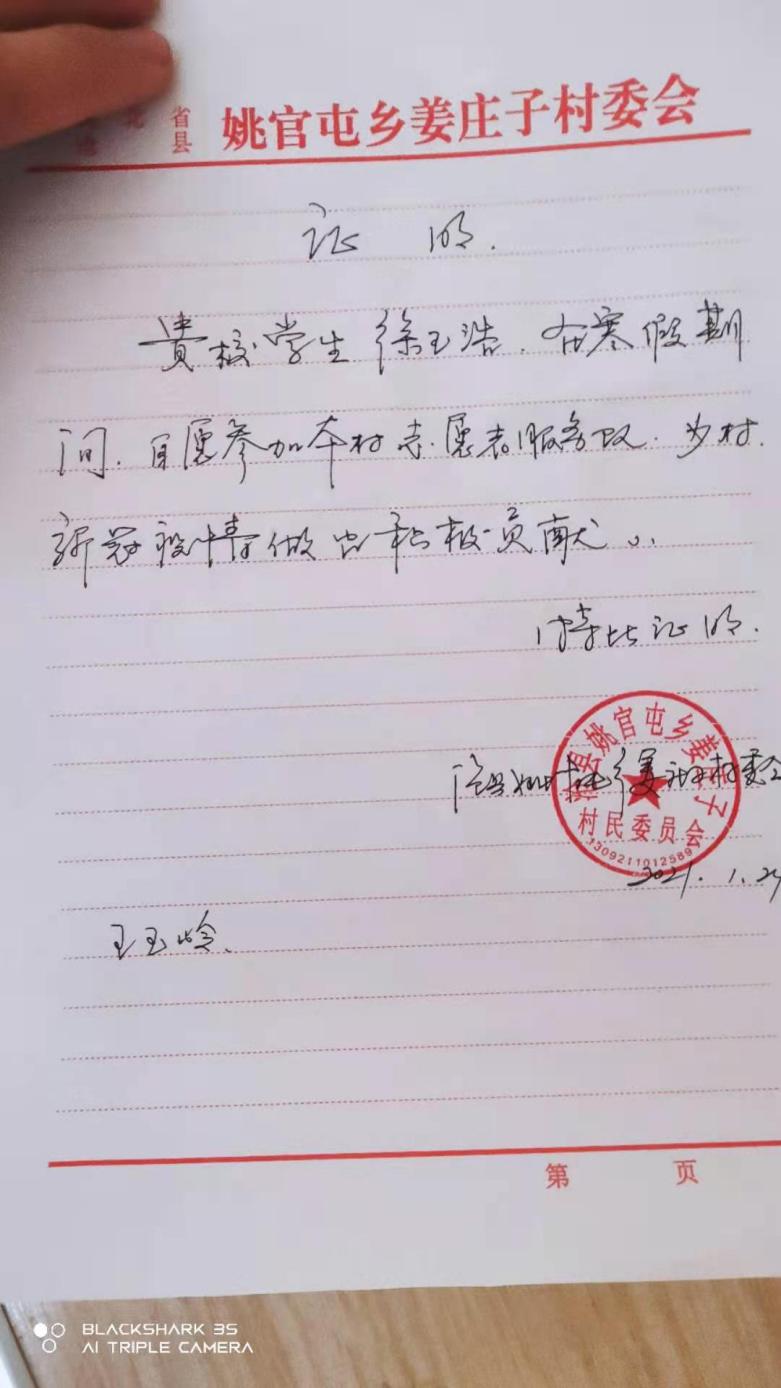 省
县
姚官屯乡姜庄子村委会
证 明.
贵校学生徐玉浩.在寒假期
间.自愿参加本村志愿者服务队.为村.
新冠疫情做出积极贡献。
特此证明.
沧县姚官屯乡姜庄子村委会
沧县姚官屯乡姜庄子
村民委员会
1309211012589
2021.1.29
王玉岭.
第 页
BLACKSHARK 3S
AI TRIPLE CAMERA